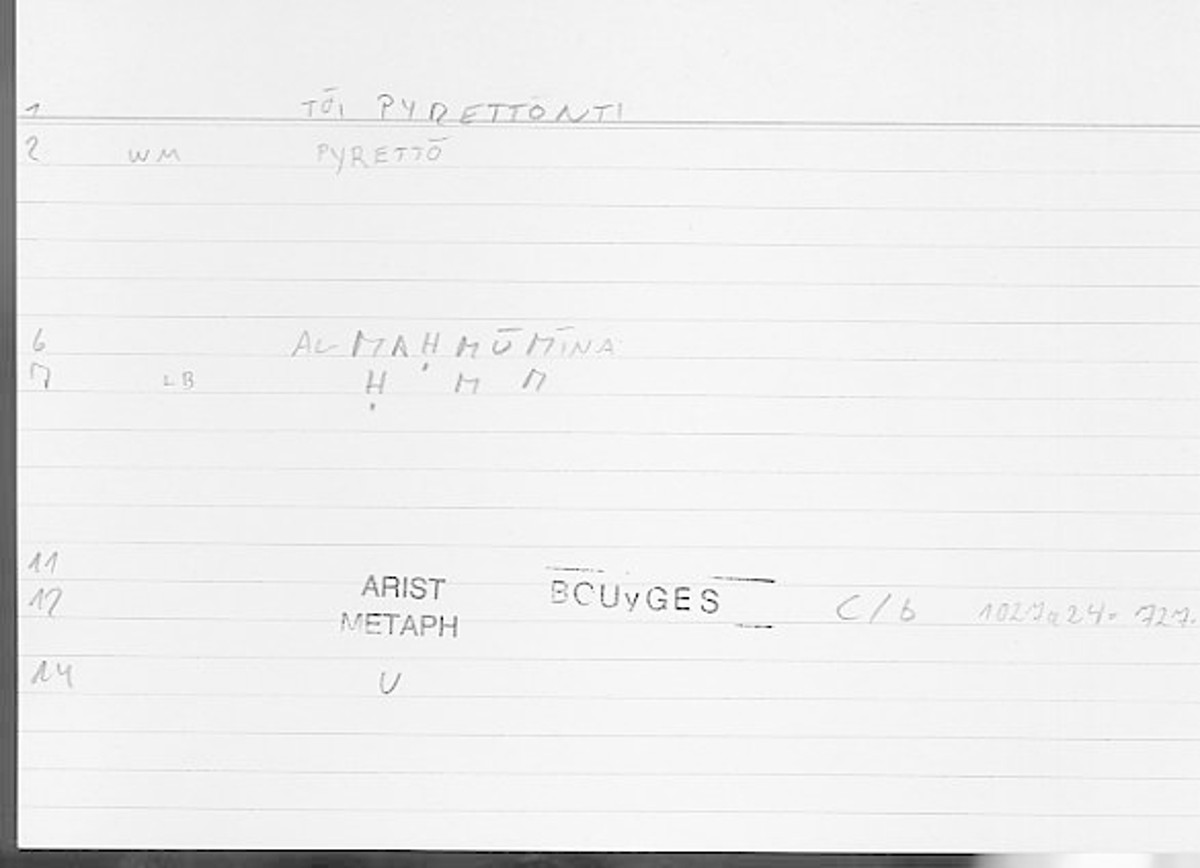 1 TŌI PYRETTONTI
2 WM PYRETTŌ
6 AL MAḤMŪMĪNA
7 LB Ḥ M M
11
12 ARIST BOUyGES C/b 1027a24. 727.
METAPH
14 U